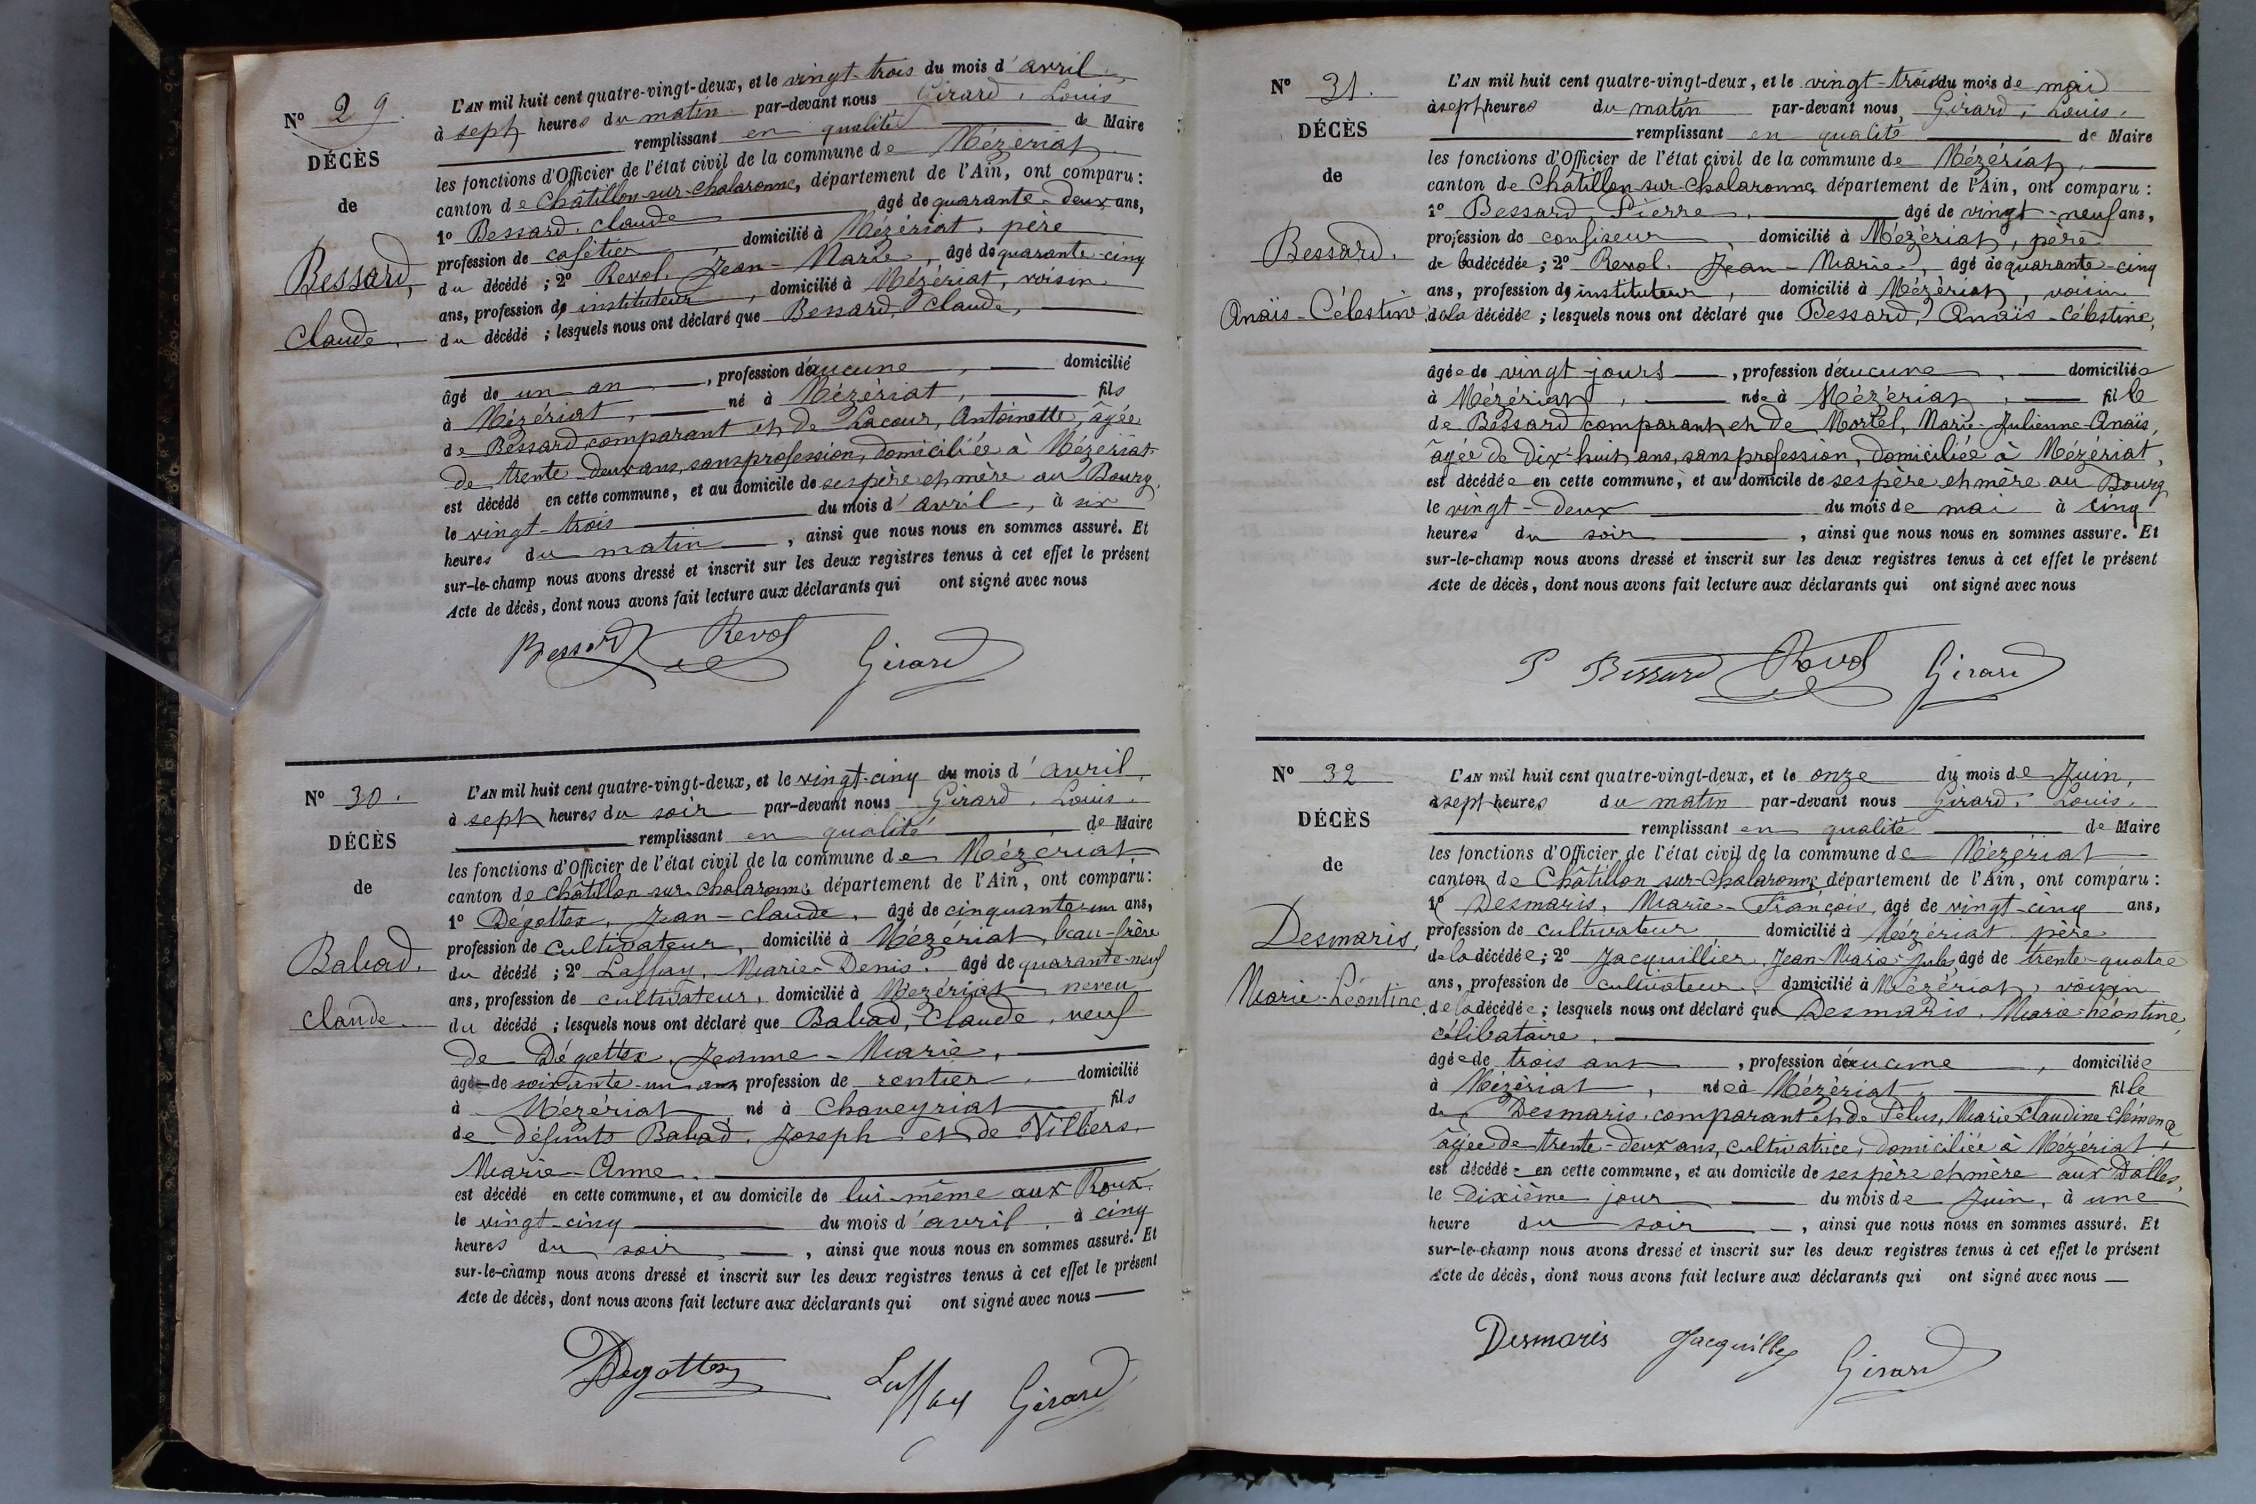 N° 29.
DÉCÈS
de
Bessard,
Claude.
L'AN mil huit cent quatre-vingt-deux, et le vingt-trois du mois d'avril,
à sept heures du matin par-devant nous Girard, Louis
remplissant en qualité de Maire
les fonctions d'Officier de l'état civil de la commune de Mézériat,
canton de Châtillon-sur-Chalaronne, département de l'Ain, ont comparu :
1° Bessard, Claude âgé de quarante-deux ans,
profession de cafetier, domicilié à Mézériat, père
du décédé ; 2° Revol, Jean-Marie, âgé de quarante-cinq
ans, profession d'instituteur, domicilié à Mézériat, voisin
du décédé ; lesquels nous ont déclaré que Bessard, Claude,
âgé de un an, profession d'aucune, domicilié
à Mézériat, né à Mézériat, fils
de Bessard comparant et de Lacour, Antoinette, âgée
de trente-deux ans, sans profession, domiciliée à Mézériat
est décédé en cette commune, et au domicile de ses père et mère au Bourg,
le vingt-trois du mois d'avril, à six
heures du matin, ainsi que nous nous en sommes assuré. Et
sur-le-champ nous avons dressé et inscrit sur les deux registres tenus à cet effet le présent
Acte de décès, dont nous avons fait lecture aux déclarants qui ont signé avec nous
Bessard Revol Girard
N° 30.
DÉCÈS
de
Babad.
Claude.
L'AN mil huit cent quatre-vingt-deux, et le vingt-cinq du mois d'avril,
à sept heures du soir par-devant nous Girard, Louis.
remplissant en qualité de Maire
les fonctions d'Officier de l'état civil de la commune de Mézériat
canton de Châtillon-sur-Chalaronne département de l'Ain, ont comparu :
1° Dégottex, Jean-Claude, âgé de cinquante-un ans,
profession de cultivateur, domicilié à Mézériat, beau-frère
du décédé ; 2° Laffay, Marie-Denis. âgé de quarante-neuf
ans, profession de cultivateur, domicilié à Mézériat, neveu
du décédé ; lesquels nous ont déclaré que Babad, Claude, veuf
de Dégottex, Jeanne-Marie,
âgé de soixante-un ans, profession de rentier, domicilié
à Mézériat né à Chaveyriat fils
de défunts Babad, Joseph et de Villiers,
Marie-Anne.
est décédé en cette commune, et au domicile de lui-même aux Roux
le vingt-cinq du mois d'avril, à cinq
heures du soir, ainsi que nous nous en sommes assuré. Et
sur-le-champ nous avons dressé et inscrit sur les deux registres tenus à cet effet le présent
Acte de décès, dont nous avons fait lecture aux déclarants qui ont signé avec nous
Degottex Laffay Girard
N° 31.
DÉCÈS
de
Bessard.
Anaïs-Célestine
L'AN mil huit cent quatre-vingt-deux, et le vingt-trois du mois de mai
à sept heures du matin par-devant nous, Girard, Louis,
remplissant en qualité de Maire
les fonctions d'Officier de l'état civil de la commune de Mézériat,
canton de Châtillon-sur-Chalaronne, département de l'Ain, ont comparu :
1° Bessard, Pierre, âgé de vingt-neuf ans,
profession de confiseur, domicilié à Mézériat, père
de la décédée ; 2° Revol, Jean-Marie, âgé de quarante-cinq
ans, profession d'instituteur, domicilié à Mézériat, voisin
de la décédée ; lesquels nous ont déclaré que Bessard, Anaïs-Célestine,
âgée de vingt jours, profession d'aucune, domiciliée
à Mézériat, née à Mézériat, fille
de Bessard comparant et de Mortel, Marie-Julienne-Anaïs,
âgée de dix-huit ans, sans profession, domiciliée à Mézériat,
est décédée en cette commune, et au domicile de ses père et mère au Bourg,
le vingt-deux du mois de mai à cinq
heures du soir, ainsi que nous nous en sommes assuré. Et
sur-le-champ nous avons dressé et inscrit sur les deux registres tenus à cet effet le présent
Acte de décès, dont nous avons fait lecture aux déclarants qui ont signé avec nous
P Bessard Revol Girard
N° 32
DÉCÈS
de
Desmaris,
Marie-Léontine
L'AN mil huit cent quatre-vingt-deux, et le onze du mois de Juin,
à sept heures du matin par-devant nous Girard, Louis,
remplissant en qualité de Maire
les fonctions d'Officier de l'état civil de la commune de Mézériat
canton de Châtillon-sur-Chalaronne, département de l'Ain, ont comparu :
1° Desmaris, Marie-François, âgé de vingt-cinq ans,
profession de cultivateur domicilié à Mézériat père
de la décédée ; 2° Jacquillier, Jean-Marie-Jules âgé de trente-quatre
ans, profession de cultivateur, domicilié à Mézériat, voisin
de la décédée ; lesquels nous ont déclaré que Desmaris, Marie-Léontine,
célibataire,
âgée de trois ans, profession d'aucune, domiciliée
à Mézériat, née à Mézériat fille
de Desmaris comparant et de Pelus, Marie Claudine Clémence,
âgée de trente-deux ans, cultivatrice, domiciliée à Mézériat,
est décédée en cette commune, et au domicile de ses père et mère aux Dalles,
le dixième jour du mois de Juin, à une
heure du soir, ainsi que nous nous en sommes assuré. Et
sur-le-champ nous avons dressé et inscrit sur les deux registres tenus à cet effet le présent
Acte de décès, dont nous avons fait lecture aux déclarants qui ont signé avec nous
Desmaris Jacquillier Girard